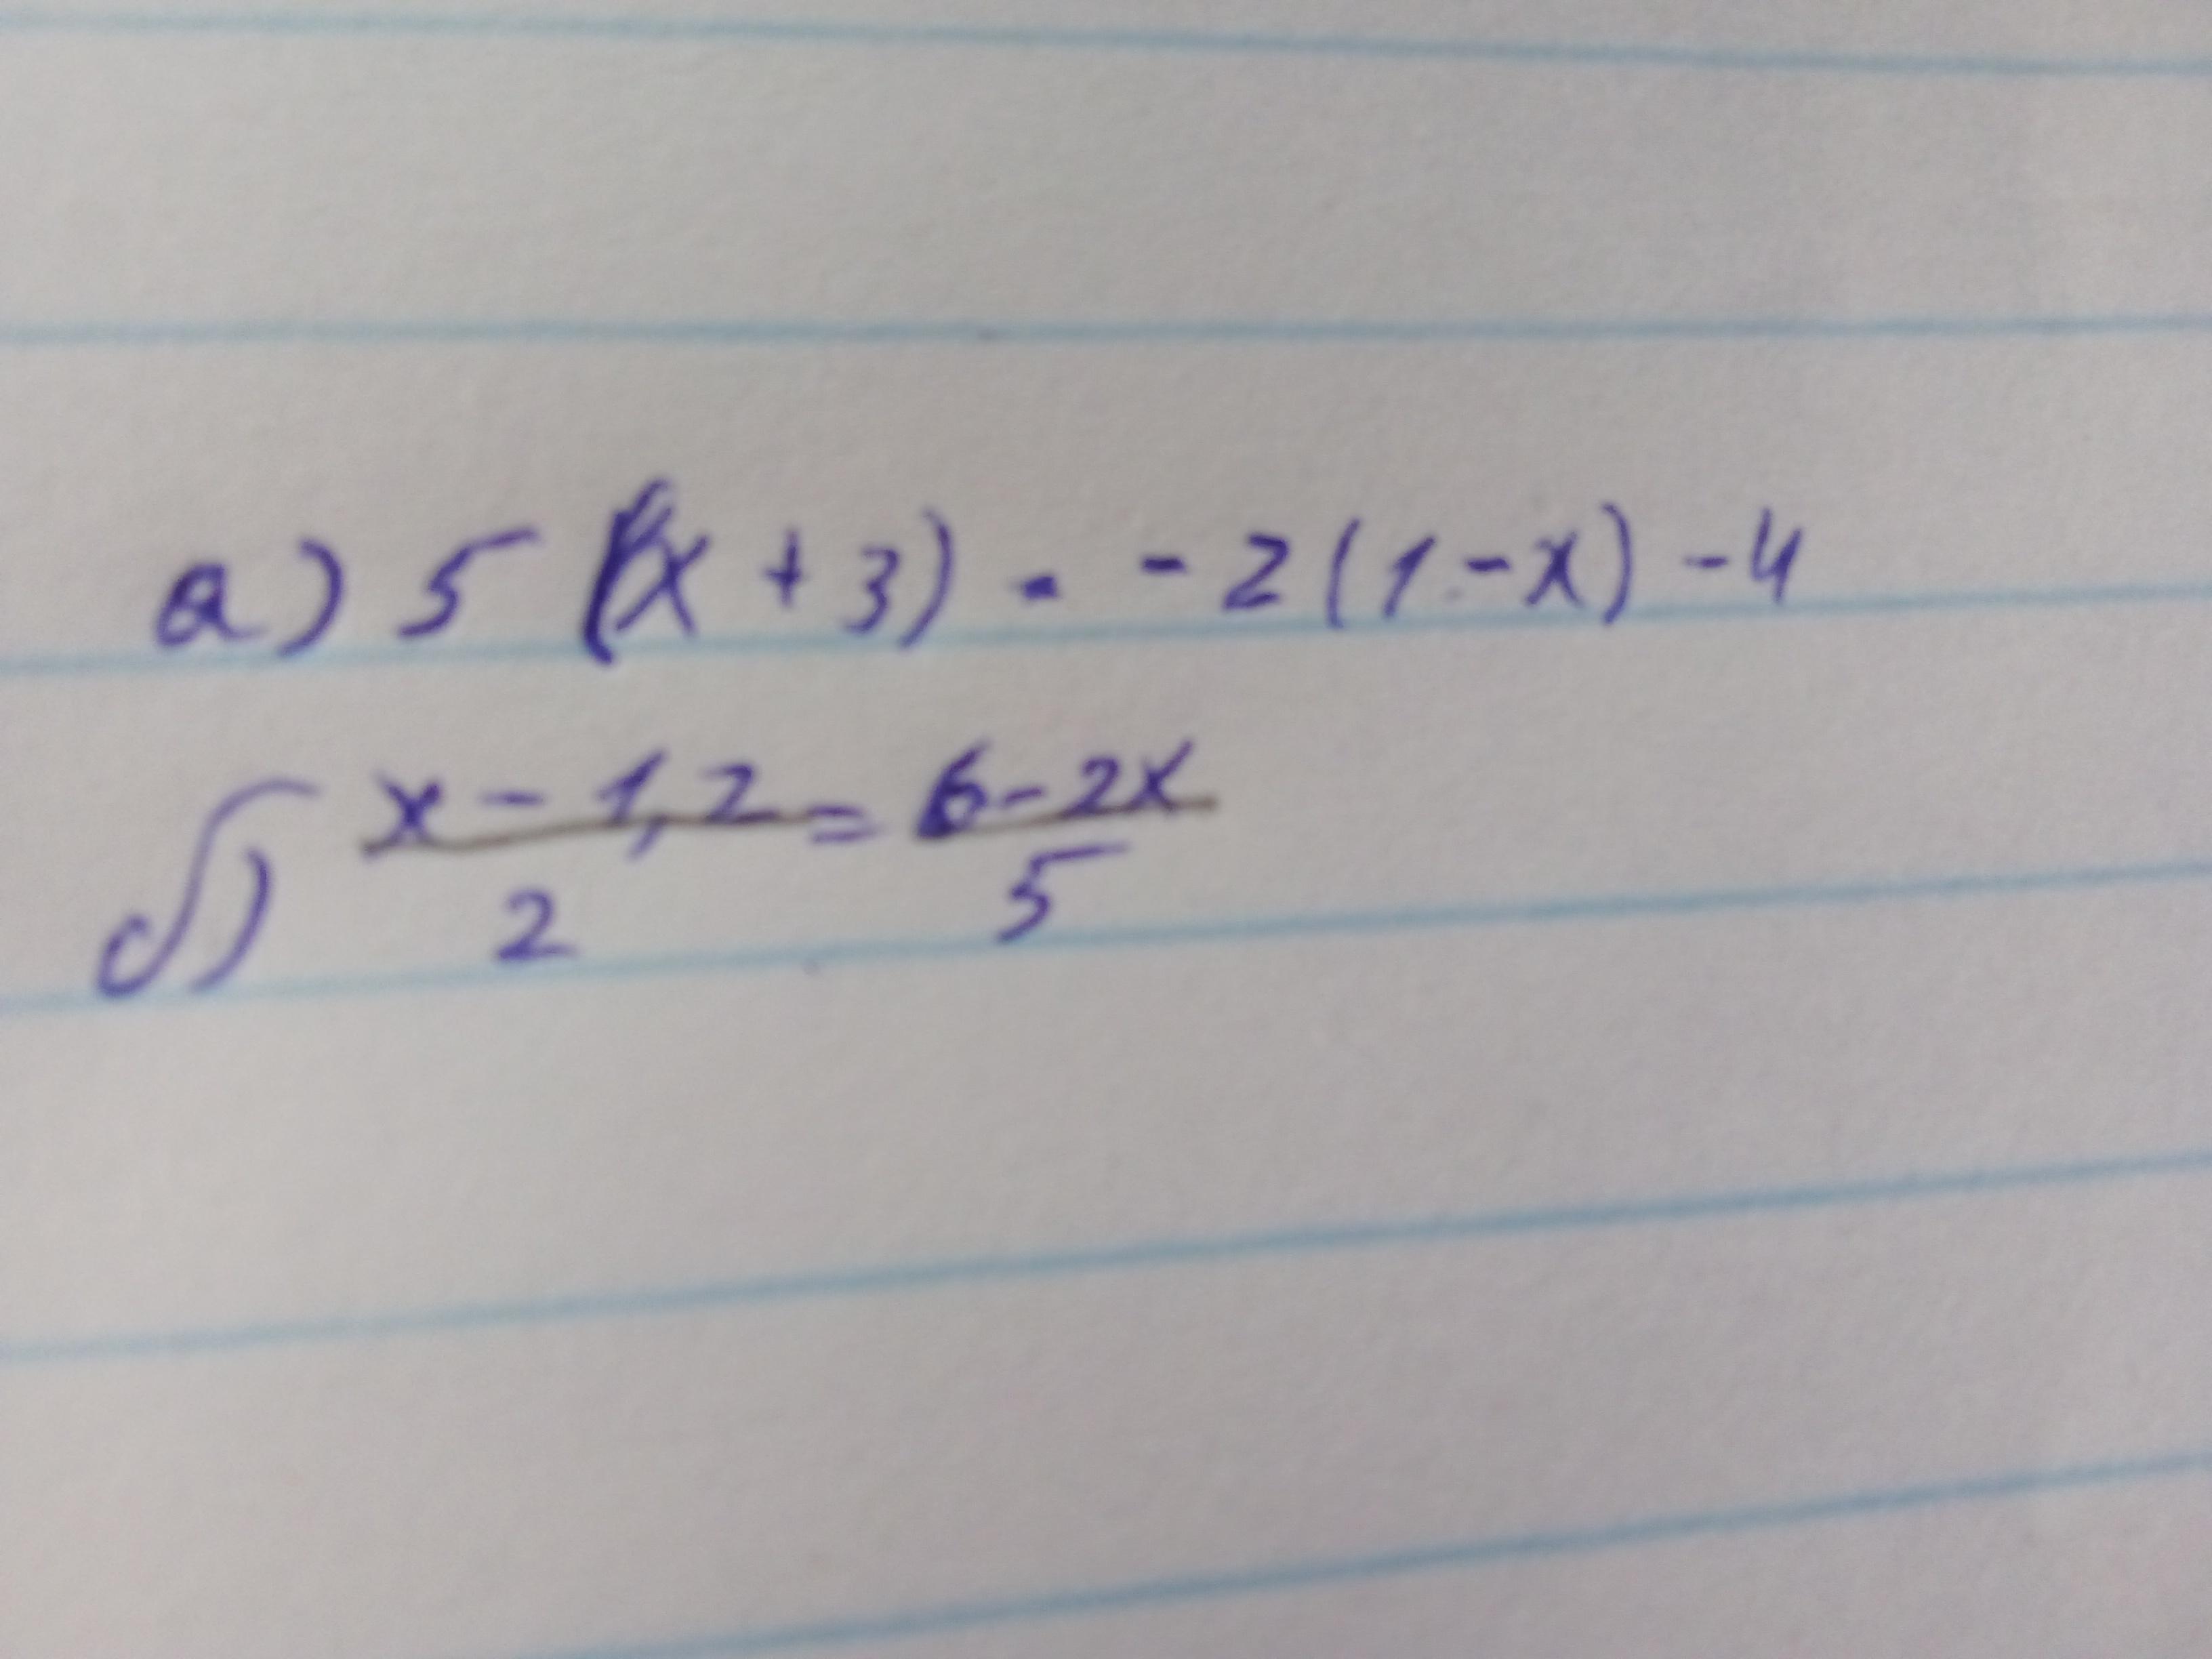 а) 5 (x + 3) = -2(1-x) -4
б) \frac{x-1,2}{2} = \frac{6-2x}{5}